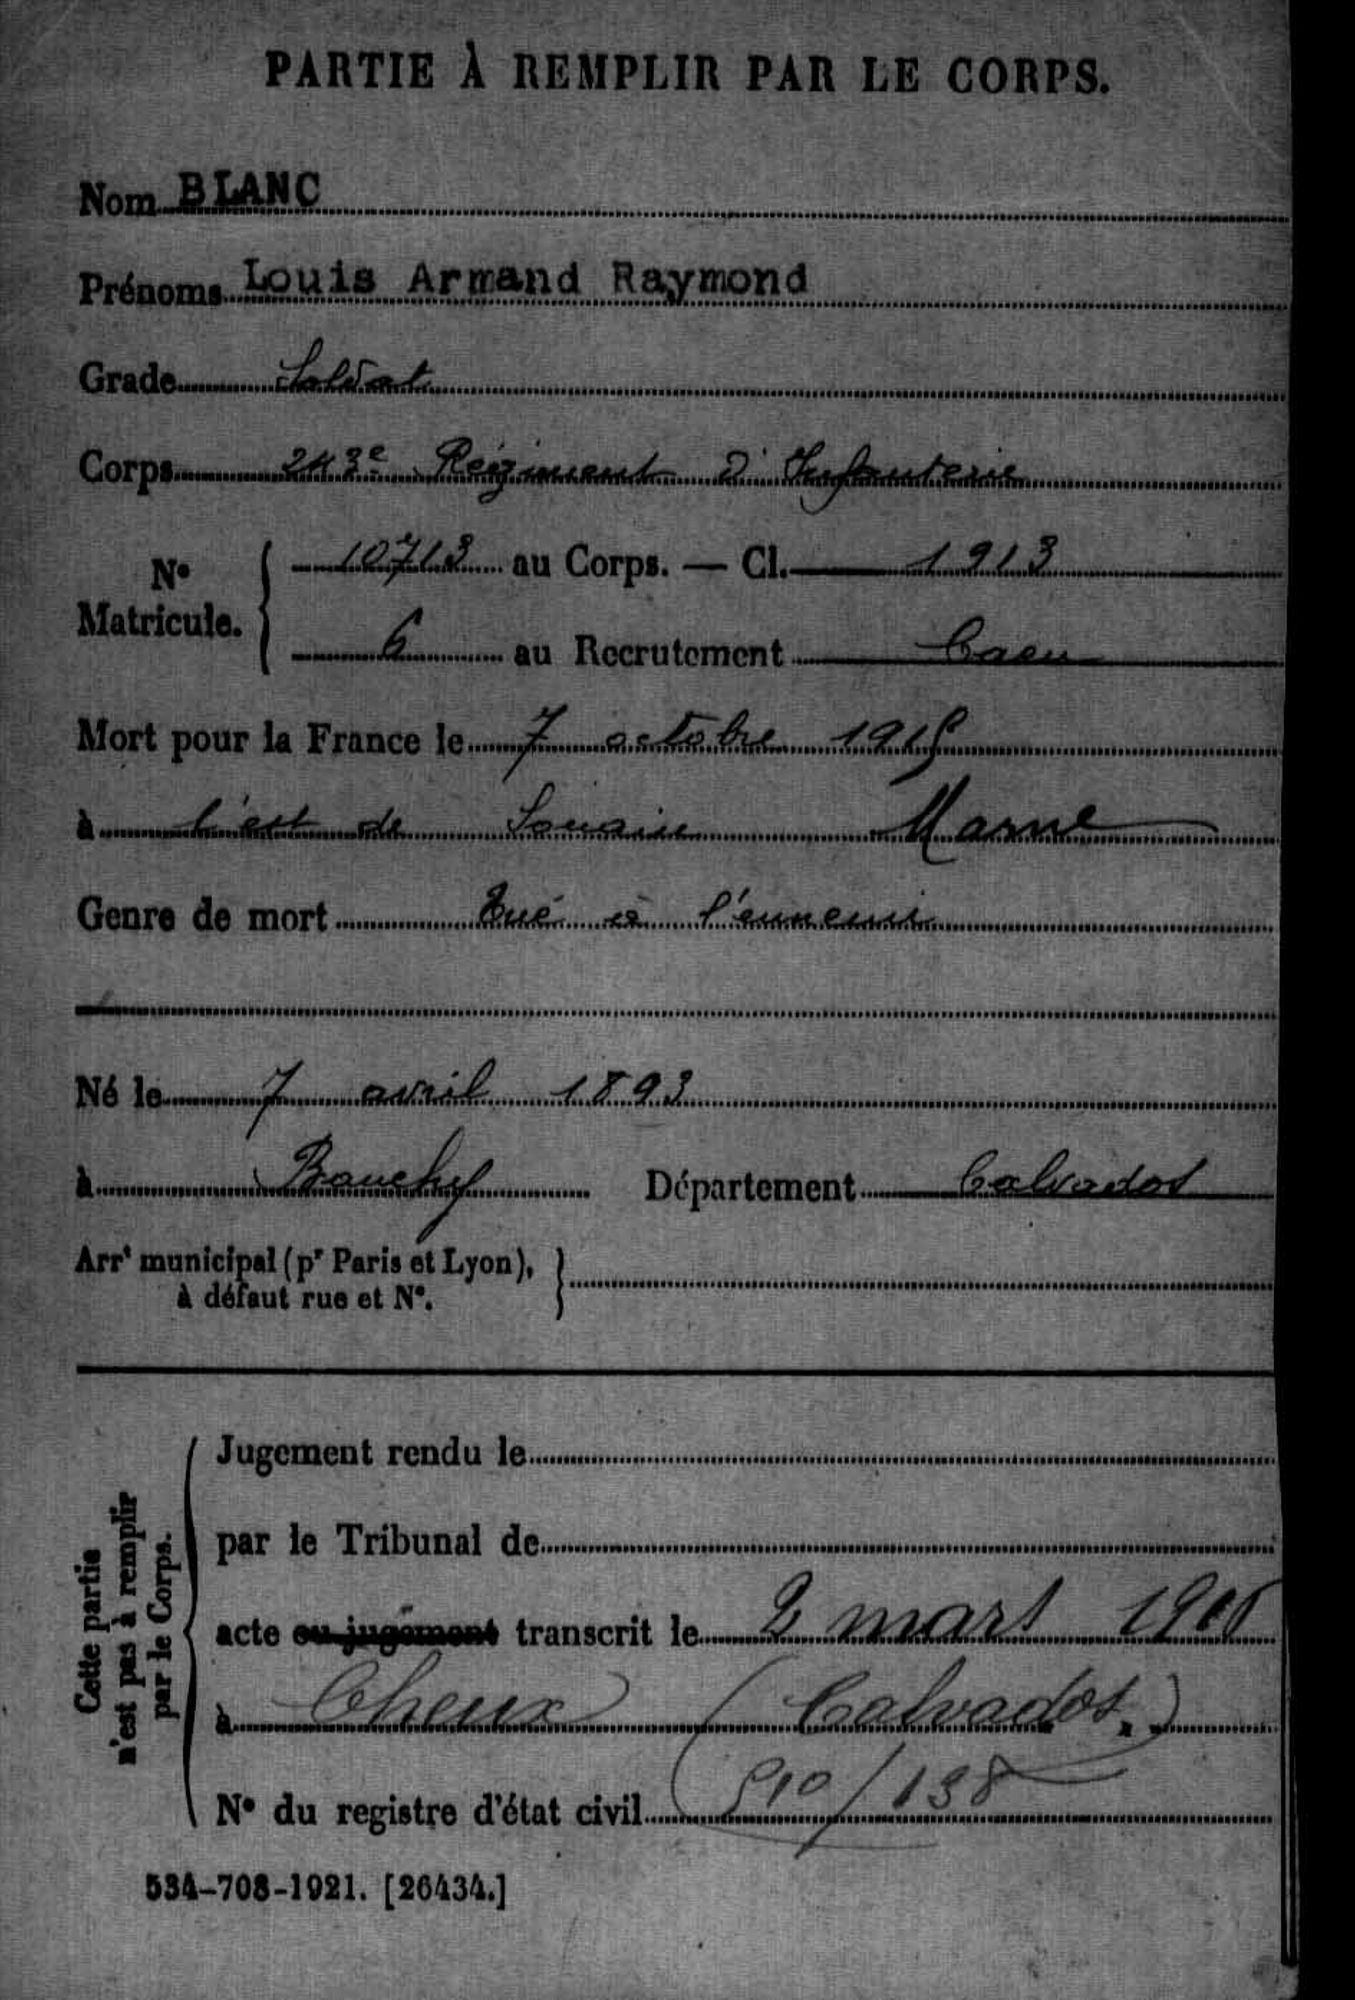 PARTIE À REMPLIR PAR LE CORPS.
Nom BLANC
Prénoms Louis Armand Raymond
Grade Soldat
Corps 243e Régiment d'Infanterie
No Matricule. 10713 au Corps. — Cl. 1913
6 au Recrutement Caen
Mort pour la France le 7 octobre 1915
à l'est de Souain Marne
Genre de mort Tué à l'ennemi
Né le 7 avril 1893
à Bauchy Département Calvados
Arrt municipal (pr Paris et Lyon),
à défaut rue et No.
Cette partie n'est pas à remplir par le Corps.
Jugement rendu le
par le Tribunal de
acte ou jugement transcrit le 2 mars
à Cheux (Calvados.)
No du registre d'état civil 510/138
534-708-1921. [26434.]